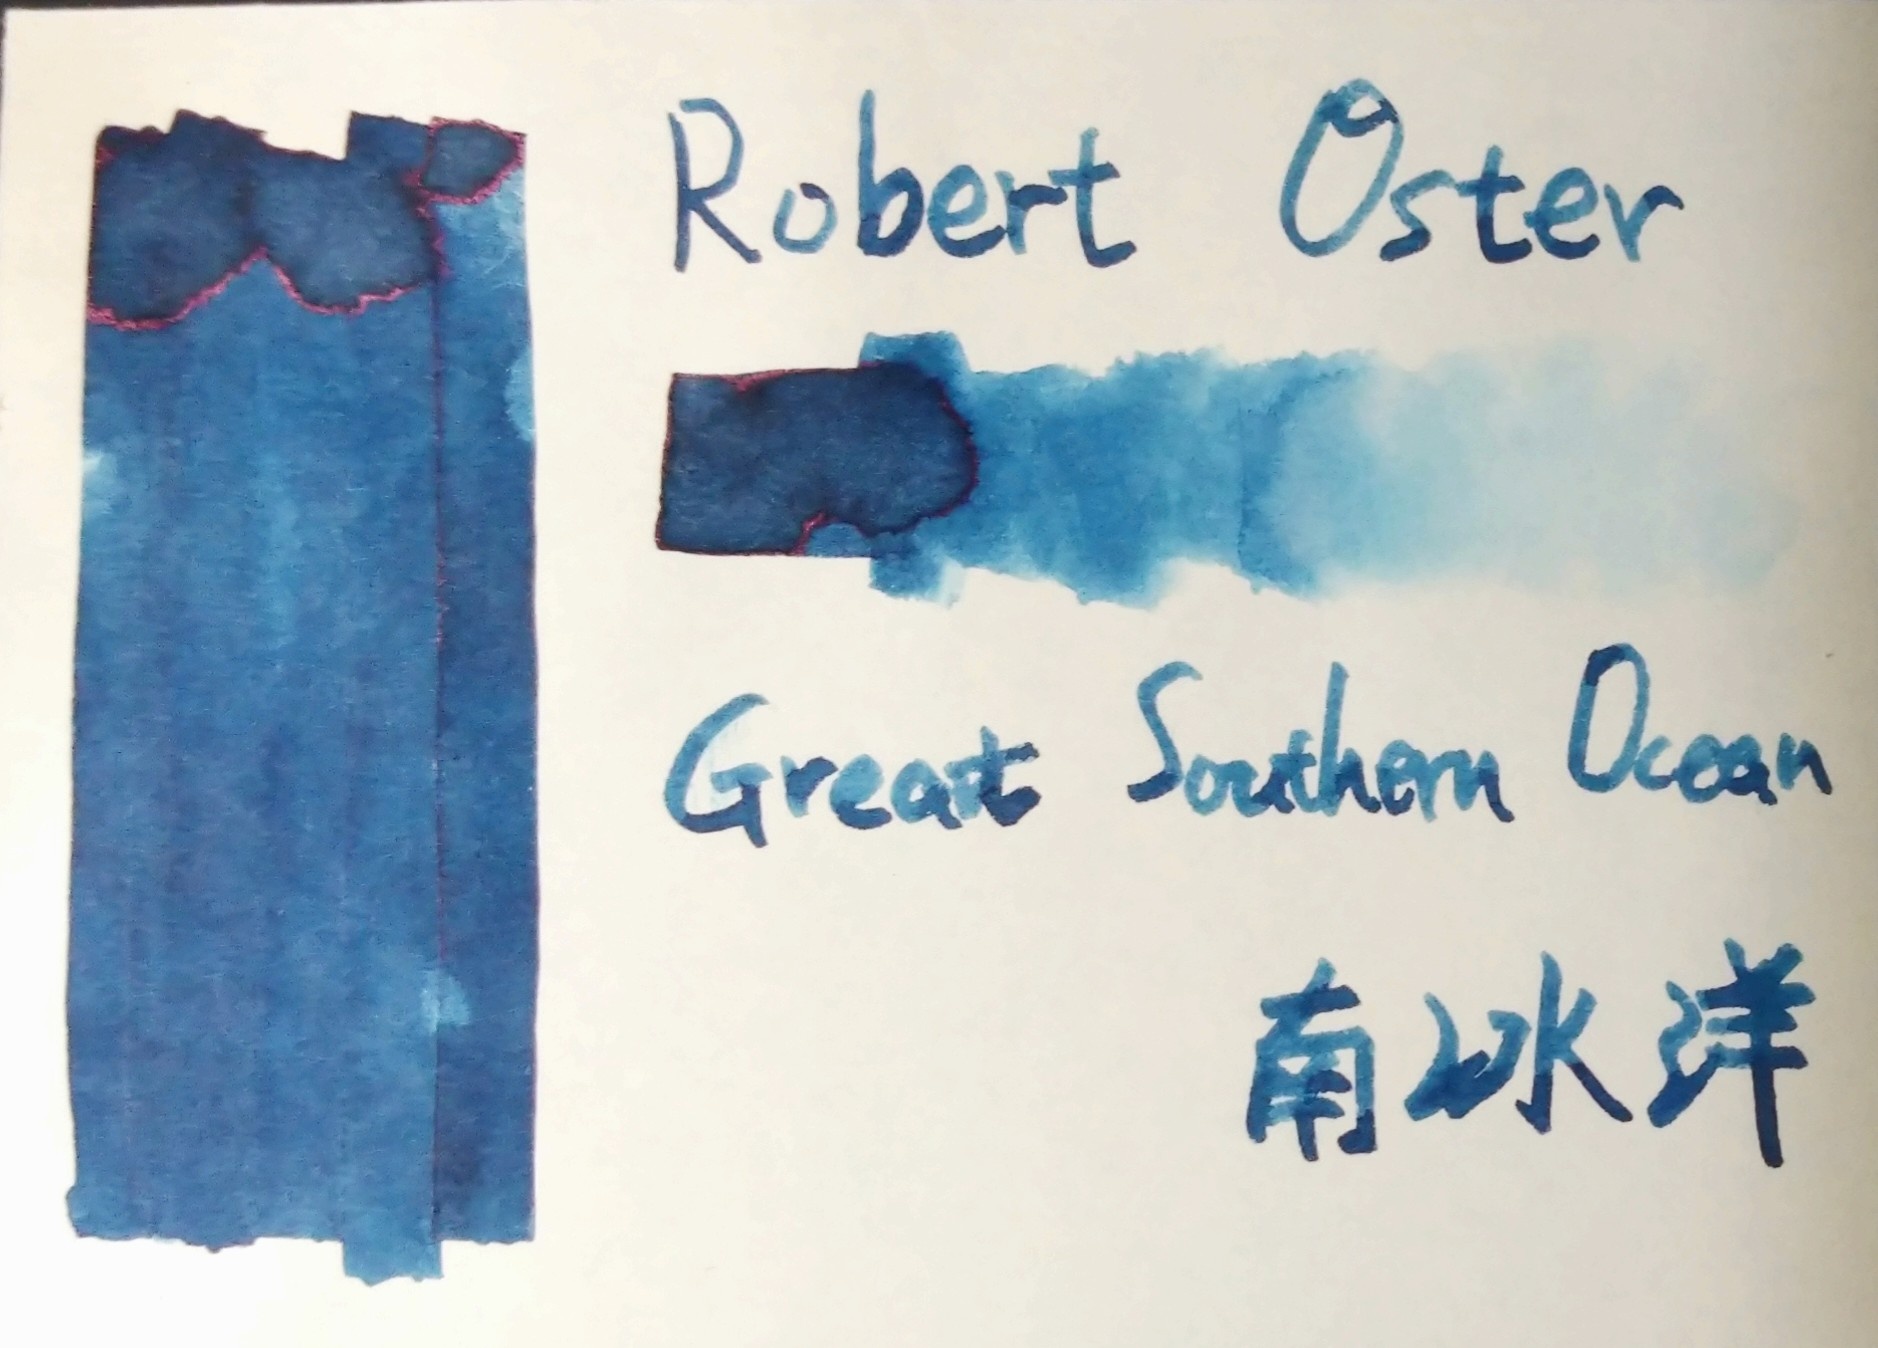 Robert Oster
Great Southern Ocean
南冰洋